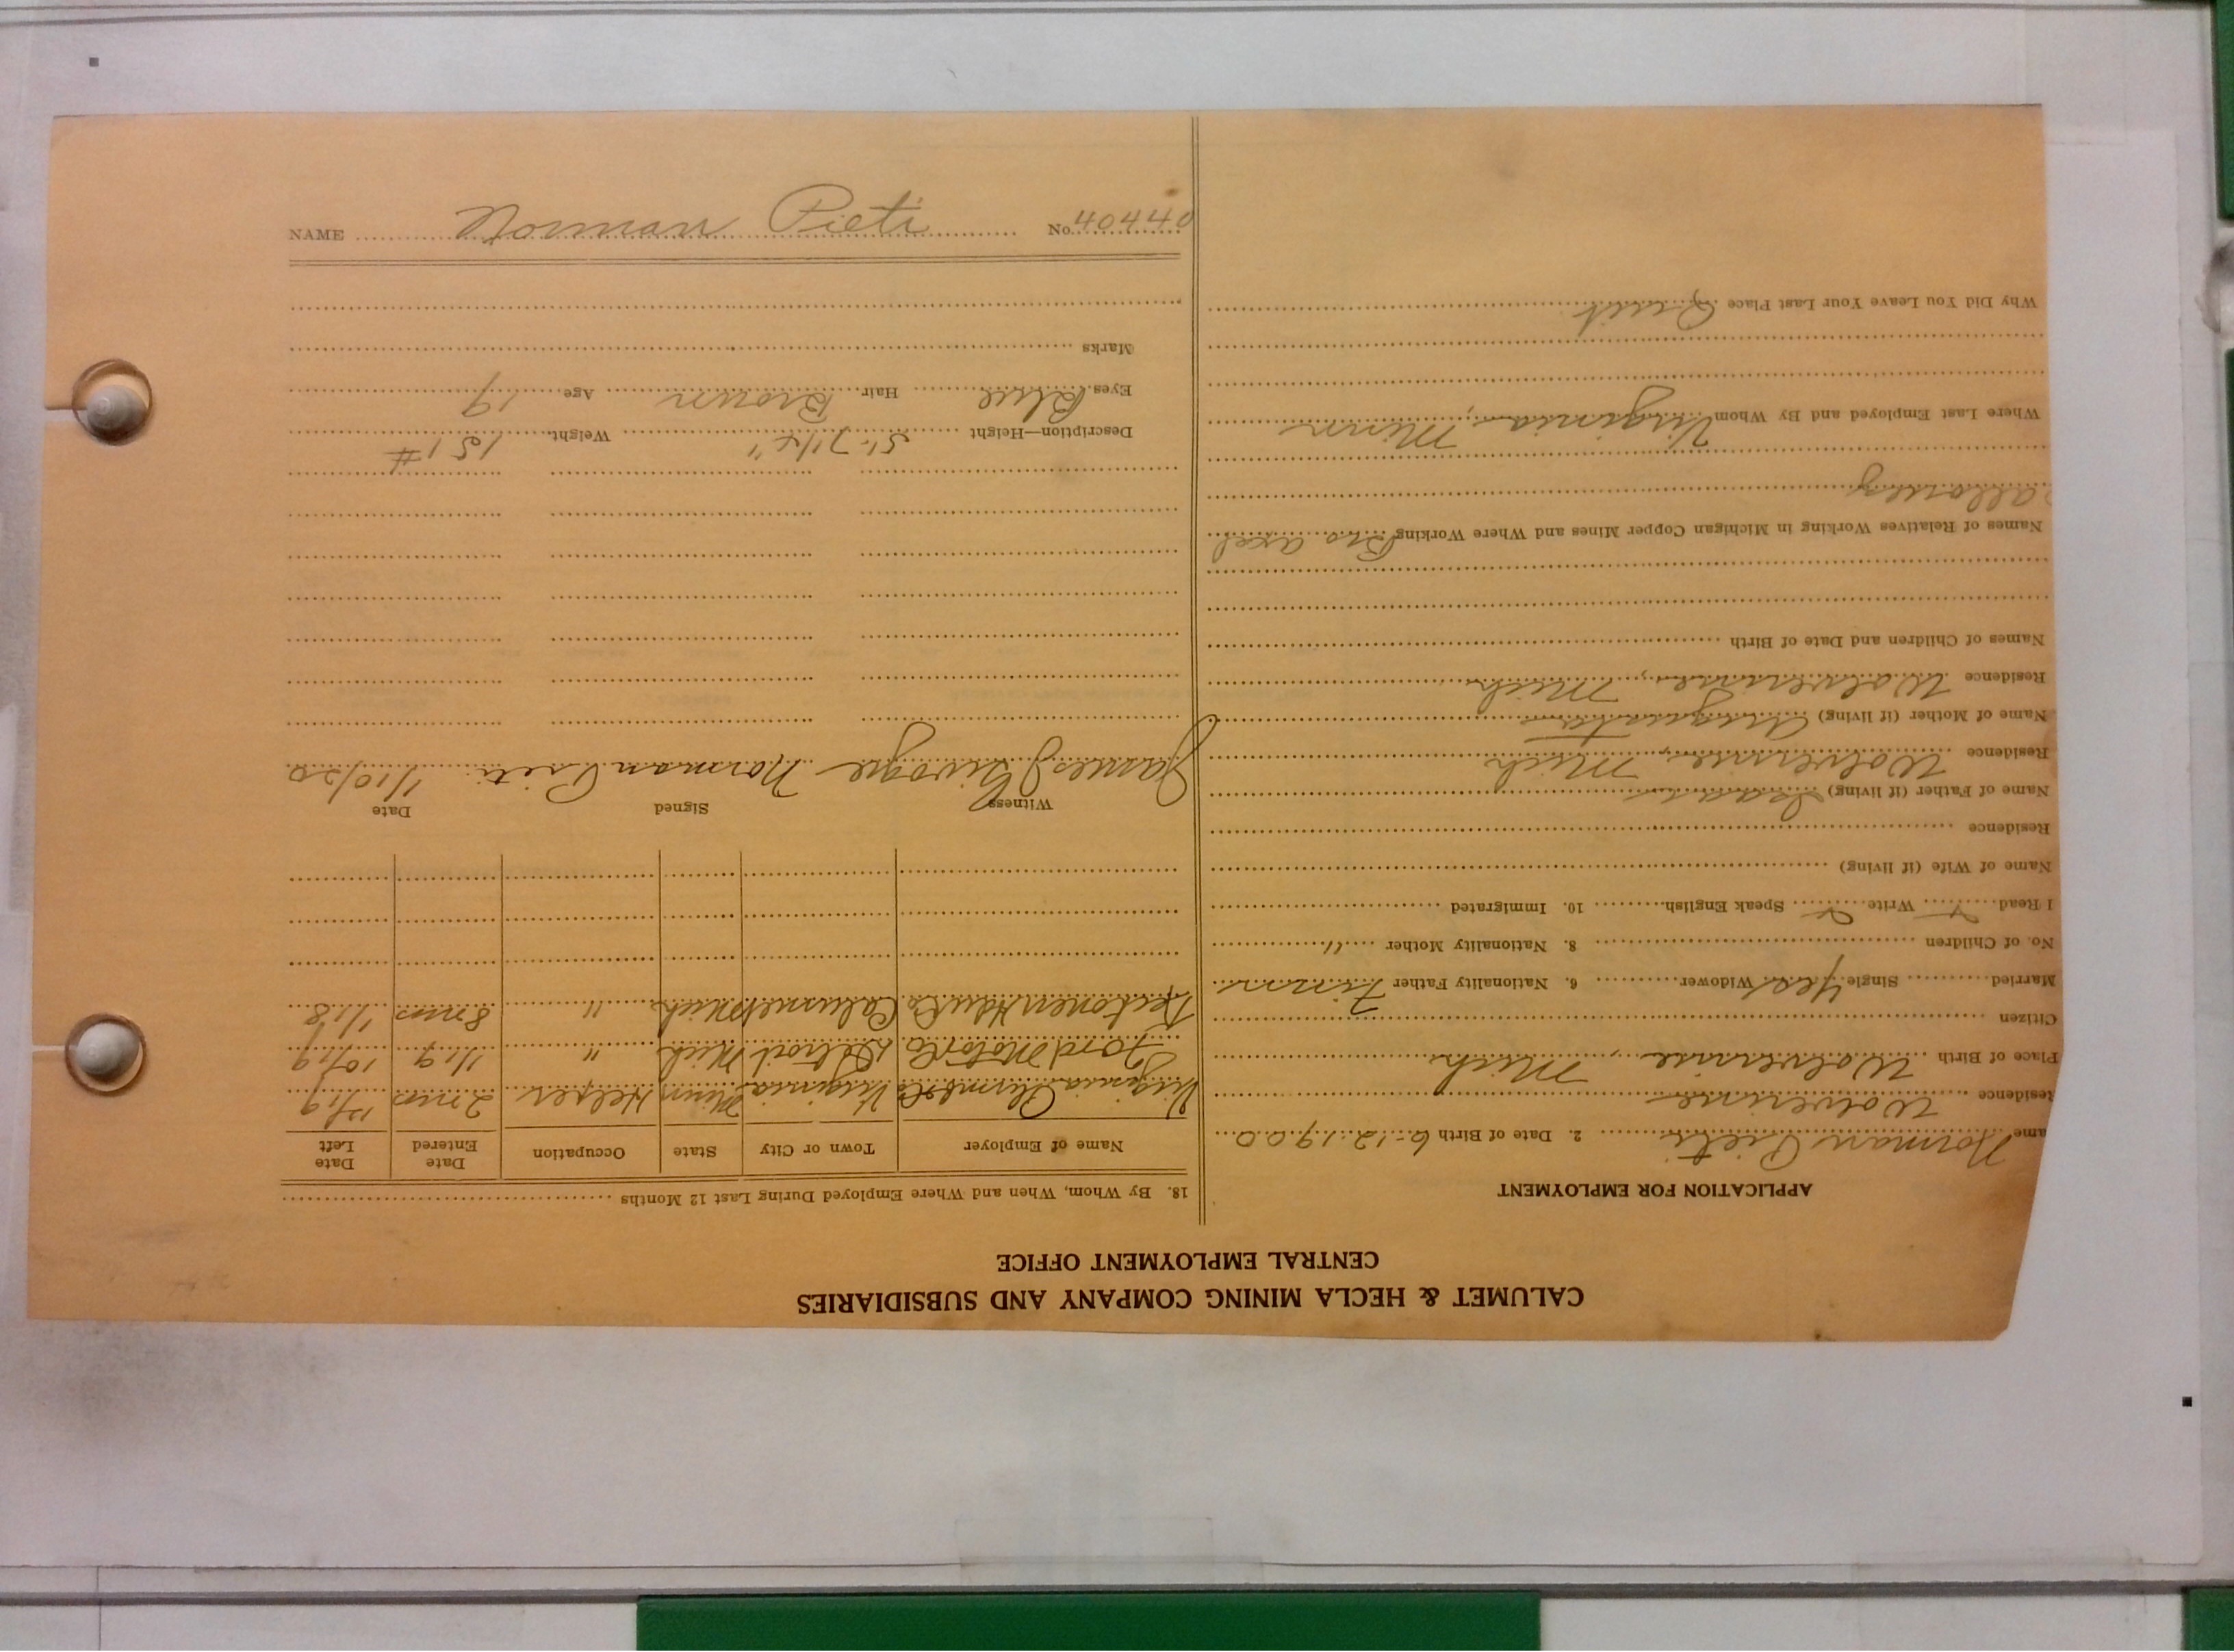 CALUMET & HECLA MINING COMPANY AND SUBSIDIARIES
CENTRAL EMPLOYMENT OFFICE
APPLICATION FOR EMPLOYMENT
ame Norman Pieti 2. Date of Birth 6-12-1900
Residence Wolverine
Place of Birth Wolverine, Mich
Citizen
Married Single Yes Widower 6. Nationality Father Finn
No. of Children 8. Nationality Mother "
I Read Write Speak English 10. Immigrated
Name of Wife (if living)
Residence
Name of Father (if living) Isaac
Residence Wolverine, Mich
Name of Mother (if living) Augusta
Residence Wolverine, Mich
Names of Children and Date of Birth
Names of Relatives Working in Michigan Copper Mines and Where Working Bro axel
allouez
Where Last Employed and By Whom Virginia, Minn
Why Did You Leave Your Last Place Quit
18. By Whom, When and Where Employed During Last 12 Months
Name of Employer Town or City State Occupation Date Entered Date Left
Virginia Virginia Minn Helper 2 mos 12/19
Ford Motor Co Detroit Mich " 1/19 10/19
Calumet Mich " 8 mos 1/18
Witness Signed Date
James Norman Pieti 1/10/20
Description—Height 5'-7 1/4" Weight 151 #
Eyes Blue Hair Brown Age 19
Marks
NAME Norman Pieti No. 40440